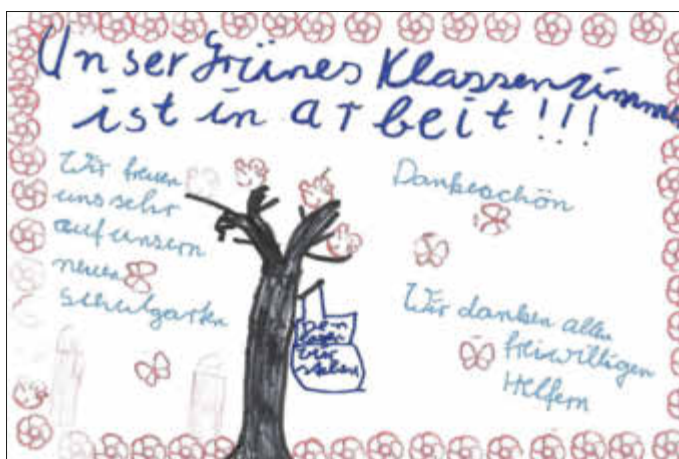 Unser Grünes Klassenzimmer
ist in arbeit!!!
Wir freuen
uns sehr
auf unsern
neuen
Schulgarten
Dankeschön
Wir danken allen
freiwilligen
Helfern